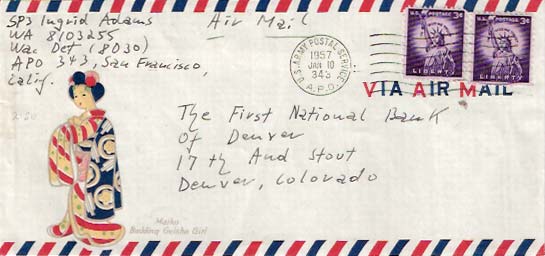 SP3 Ingrid Adams
Air Mail
WA 8103255
Wac Det (8030)
APO 343, San Francisco,
Calif.
U.S. ARMY POSTAL SERVICE
1957
JAN 10
343
A.P.O.
U.S. POSTAGE 3¢
LIBERTY
U.S. POSTAGE 3¢
LIBERTY
VIA AIR MAIL
The First National Bank
Of Denver
17th And Stout
Denver, Colorado
Maiko
Budding Geisha Girl